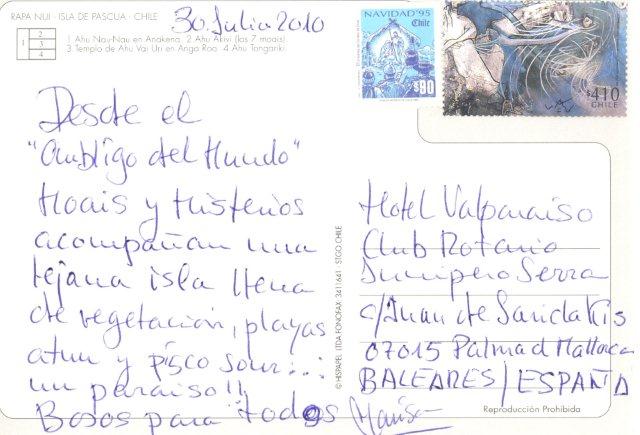 RAPA NUI · ISLA DE PASCUA · CHILE
1 2 3 4
1 Ahu Nau-Nau en Anakena 2 Ahu Akivi (los 7 moais)
3 Templo de Ahu Vai Uri en Anga Roa 4 Ahu Tongariki
30. Julio 2010
NAVIDAD'95
Chile
$90
$410
CHILE
Desde el
"Ombligo del Mundo"
Moais y Misterios
acompañan una
lejana isla llena
de vegetación, playas
atun y pisco sour...
un paraíso!!
Besos para todos Marisa
© HISPAPEL LTDA FONOFAX 3411641 · STGO.CHILE
Hotel Valparaiso
Club Rotario
Junipero Serra
c/Juan de Saridakis
07015 Palma d Mallorca
BALEARES/ESPAÑA
Reproducción Prohibida